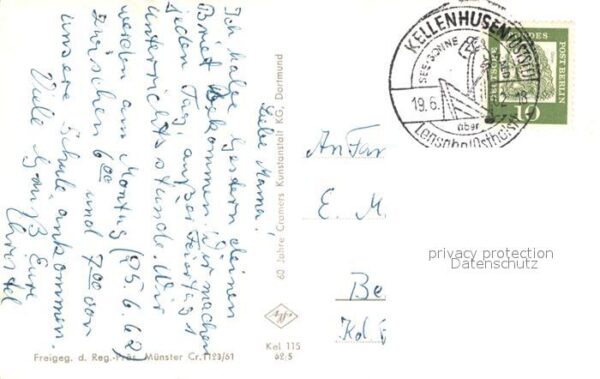 Liebe Mama!
Ich habe gestern deinen
Brief bekommen. Wir machen
jeden Tag, außer Feiertag 1
Unterrichtsstunde. Wir
werden am Montag (25.6.62)
zwischen 6.00 und 7.00 vor
unsere Schule ankommen.
Viele Grüße Eure
Christel
60 Jahre Cramers Kunstanstalt KG, Dortmund
Kel 115
62.S
Freigeg. d. Reg.-Präs. Münster Cr. 1123/61
KELLENHUSEN (OSTSEE)
SEE·SONNE
19.6.
über
Lensahn (Ostholst)
DEUTSCHE
POST BERLIN
10
An Fa
E. M.
Be
Kd
privacy protection
Datenschutz